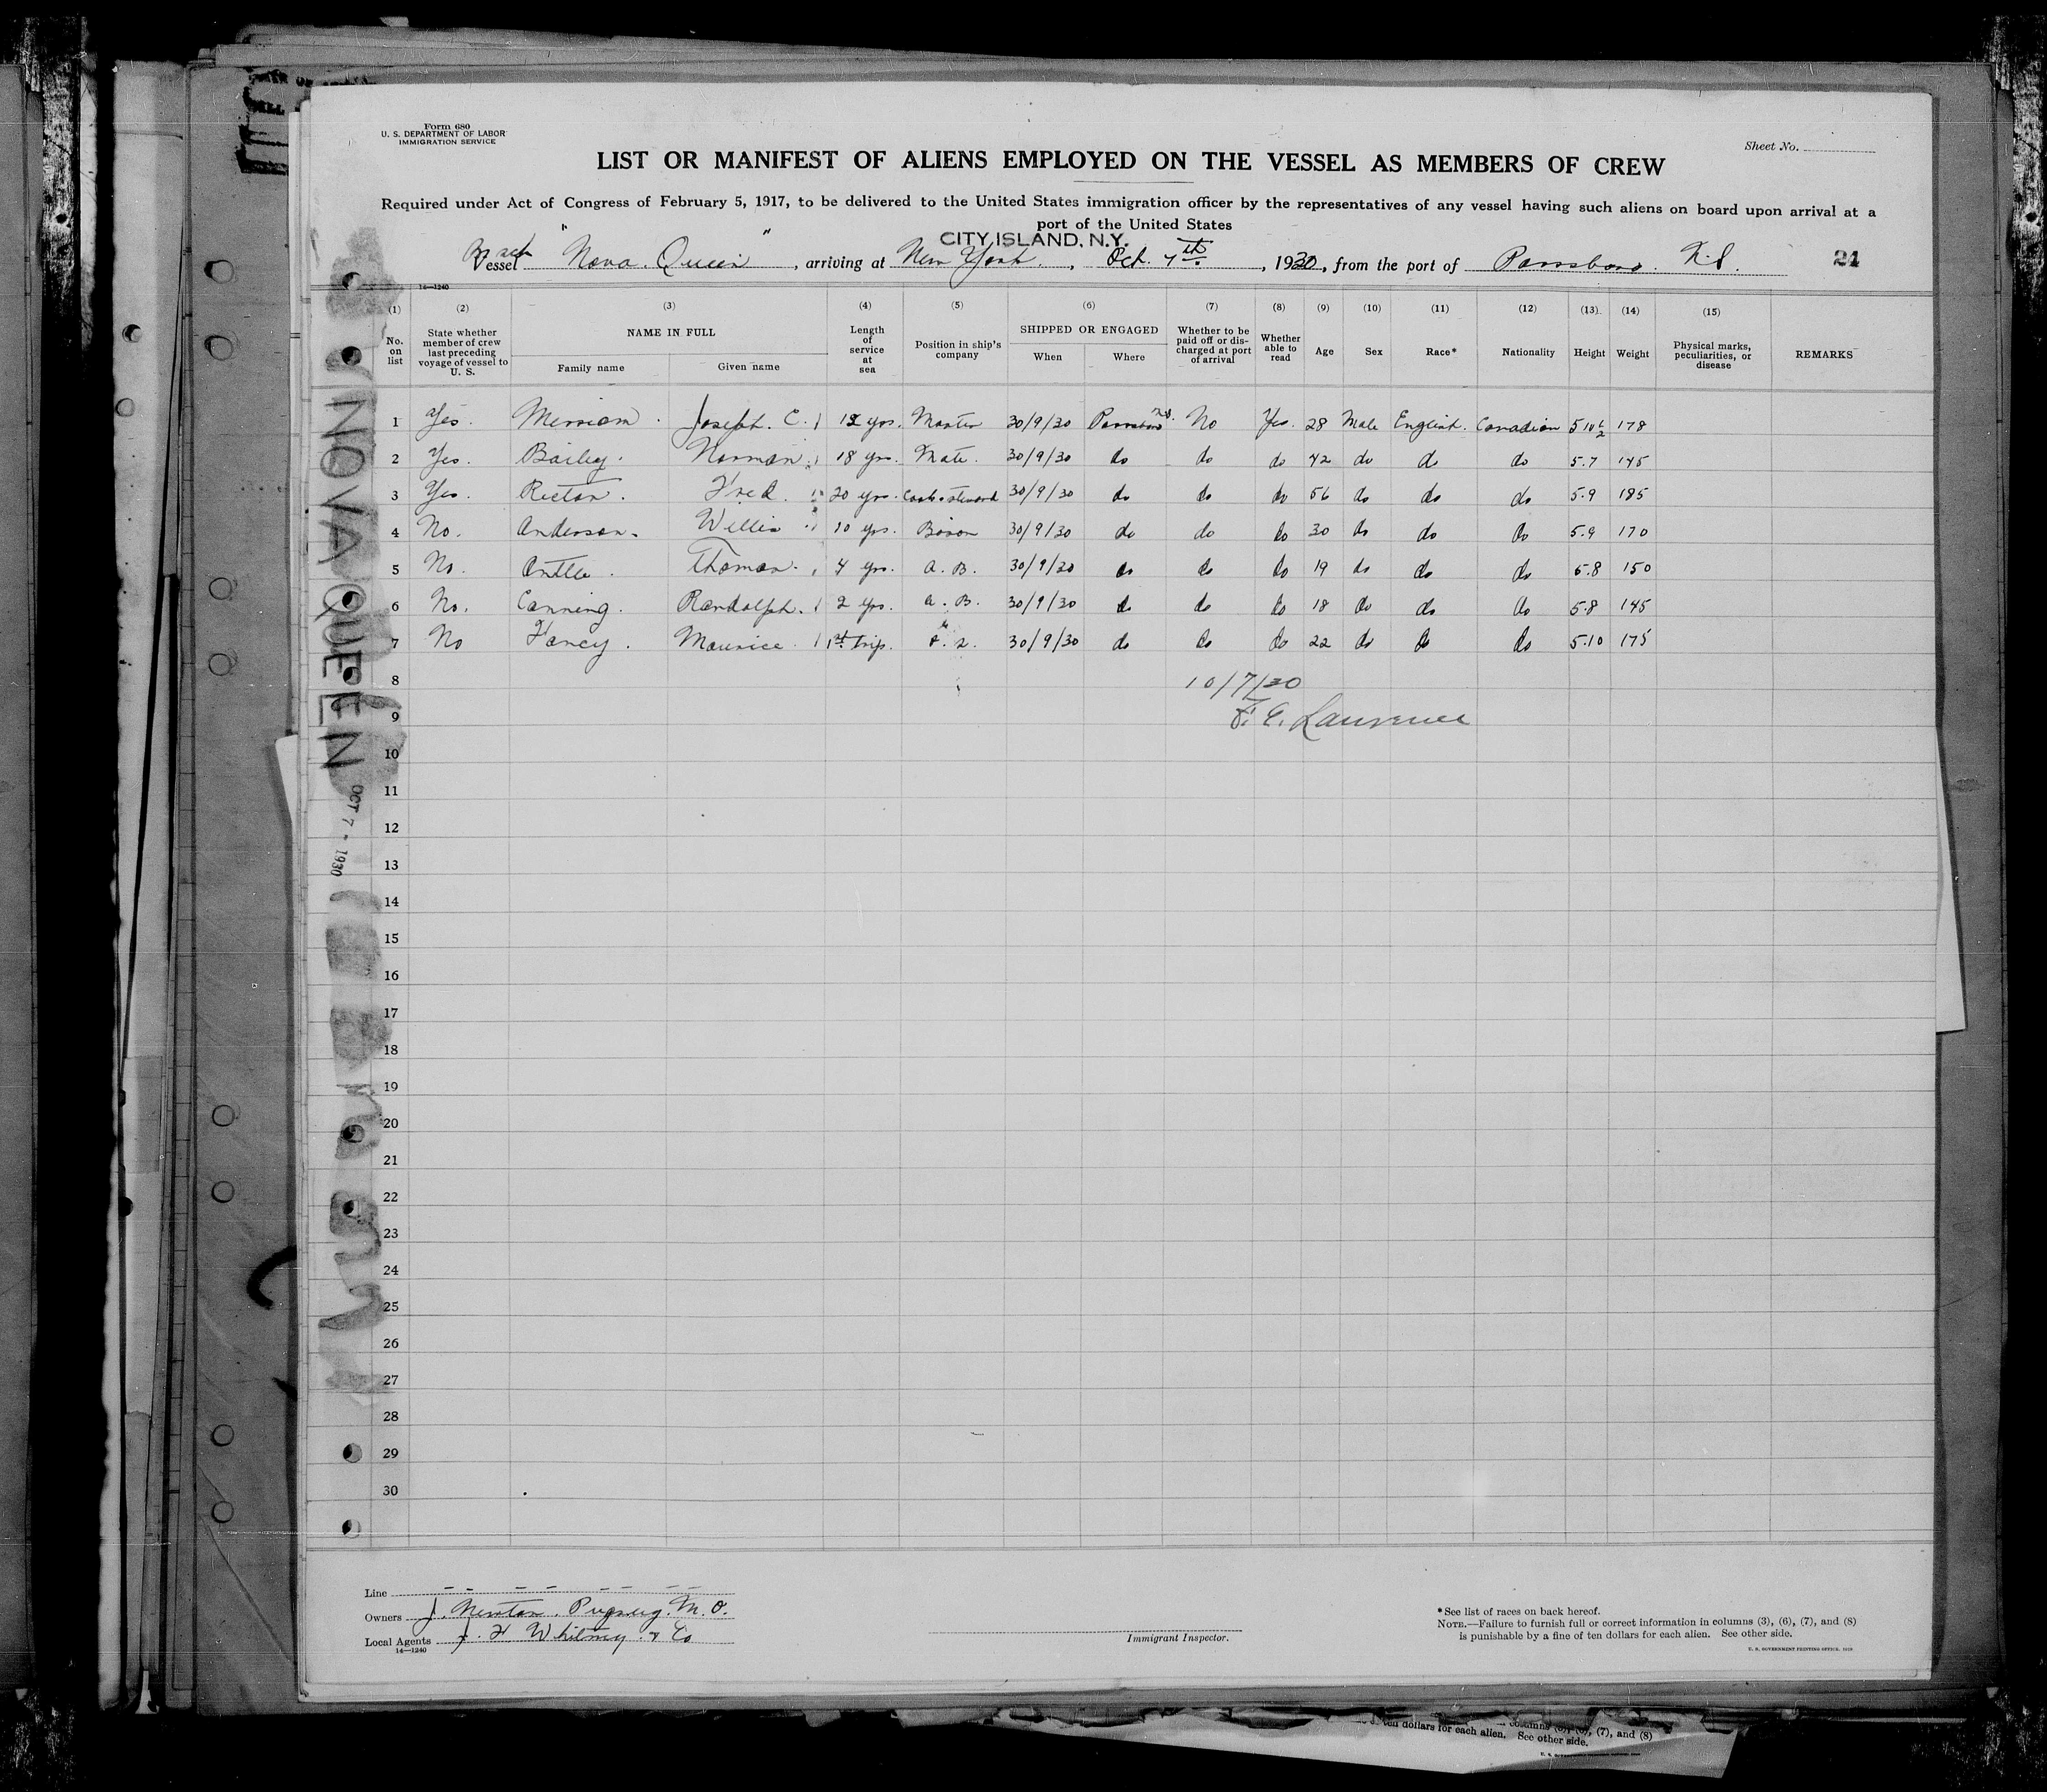 Form 680
U. S. DEPARTMENT OF LABOR
IMMIGRATION SERVICE
Sheet No.
LIST OR MANIFEST OF ALIENS EMPLOYED ON THE VESSEL AS MEMBERS OF CREW
Required under Act of Congress of February 5, 1917, to be delivered to the United States immigration officer by the representatives of any vessel having such aliens on board upon arrival at a
port of the United States
CITY ISLAND, N.Y.
Vessel "Nova Queen", arriving at New York, Oct. 7th, 1930, from the port of Parrsboro. N.S. 24
14—1240
(1) (2) (3) (4) (5) (6) (7) (8) (9) (10) (11) (12) (13) (14) (15)
No. on list State whether member of crew last preceding voyage of vessel to U. S. NAME IN FULL Family name Given name Length of service at sea Position in ship's company SHIPPED OR ENGAGED When Where Whether to be paid off or discharged at port of arrival Whether able to read Age Sex Race* Nationality Height Weight Physical marks, peculiarities, or disease REMARKS
1 Yes. Merriam. Joseph. C. 12 yrs. Master 30/9/30 Parrsboro N.S. No Yes. 28 Male English. Canadian 5 10 1/2 178
2 Yes. Bailey. Norman. 18 yrs. Mate. 30/9/30 do do do 42 do do do 5.7 145
3 Yes. Rector. Fred. 20 yrs. Cook & Steward 30/9/30 do do do 56 do do do 5.9 185
4 No. Anderson. Willis 10 yrs. Boson 30/9/30 do do do 30 do do do 5.9 170
5 No. Antle. Thomas. 4 yrs. A. B. 30/9/30 do do do 19 do do do 5.8 150
6 No. Canning. Randolph. 2 yrs. A. B. 30/9/30 do do do 18 do do do 5.8 145
7 No Fancy. Maurice. 1st trip. 30/9/30 do do do 22 do do do 5.10 175
8 10/7/30
9 F. E. Laurence
10
11
12
13
14
15
16
17
18
19
20
21
22
23
24
25
26
27
28
29
30
NOVA QUEEN
OCT 7 - 1930
Line
Owners J. Newton. Pugsley. M. O.
Local Agents J. F Whitney & Co
14—1240
Immigrant Inspector.
* See list of races on back hereof.
NOTE.—Failure to furnish full or correct information in columns (3), (6), (7), and (8)
is punishable by a fine of ten dollars for each alien. See other side.
U. S. GOVERNMENT PRINTING OFFICE: 1929
columns (3), (6), (7), and (8)
ten dollars for each alien. See other side.